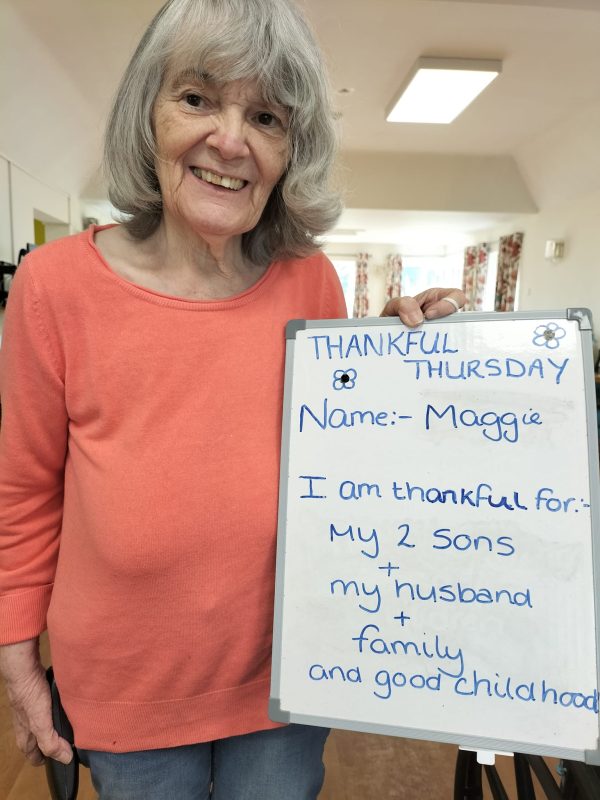 THANKFUL
THURSDAY
Name:- Maggie
I am thankful for:-
My 2 sons
+
my husband
+
family
and good childhood